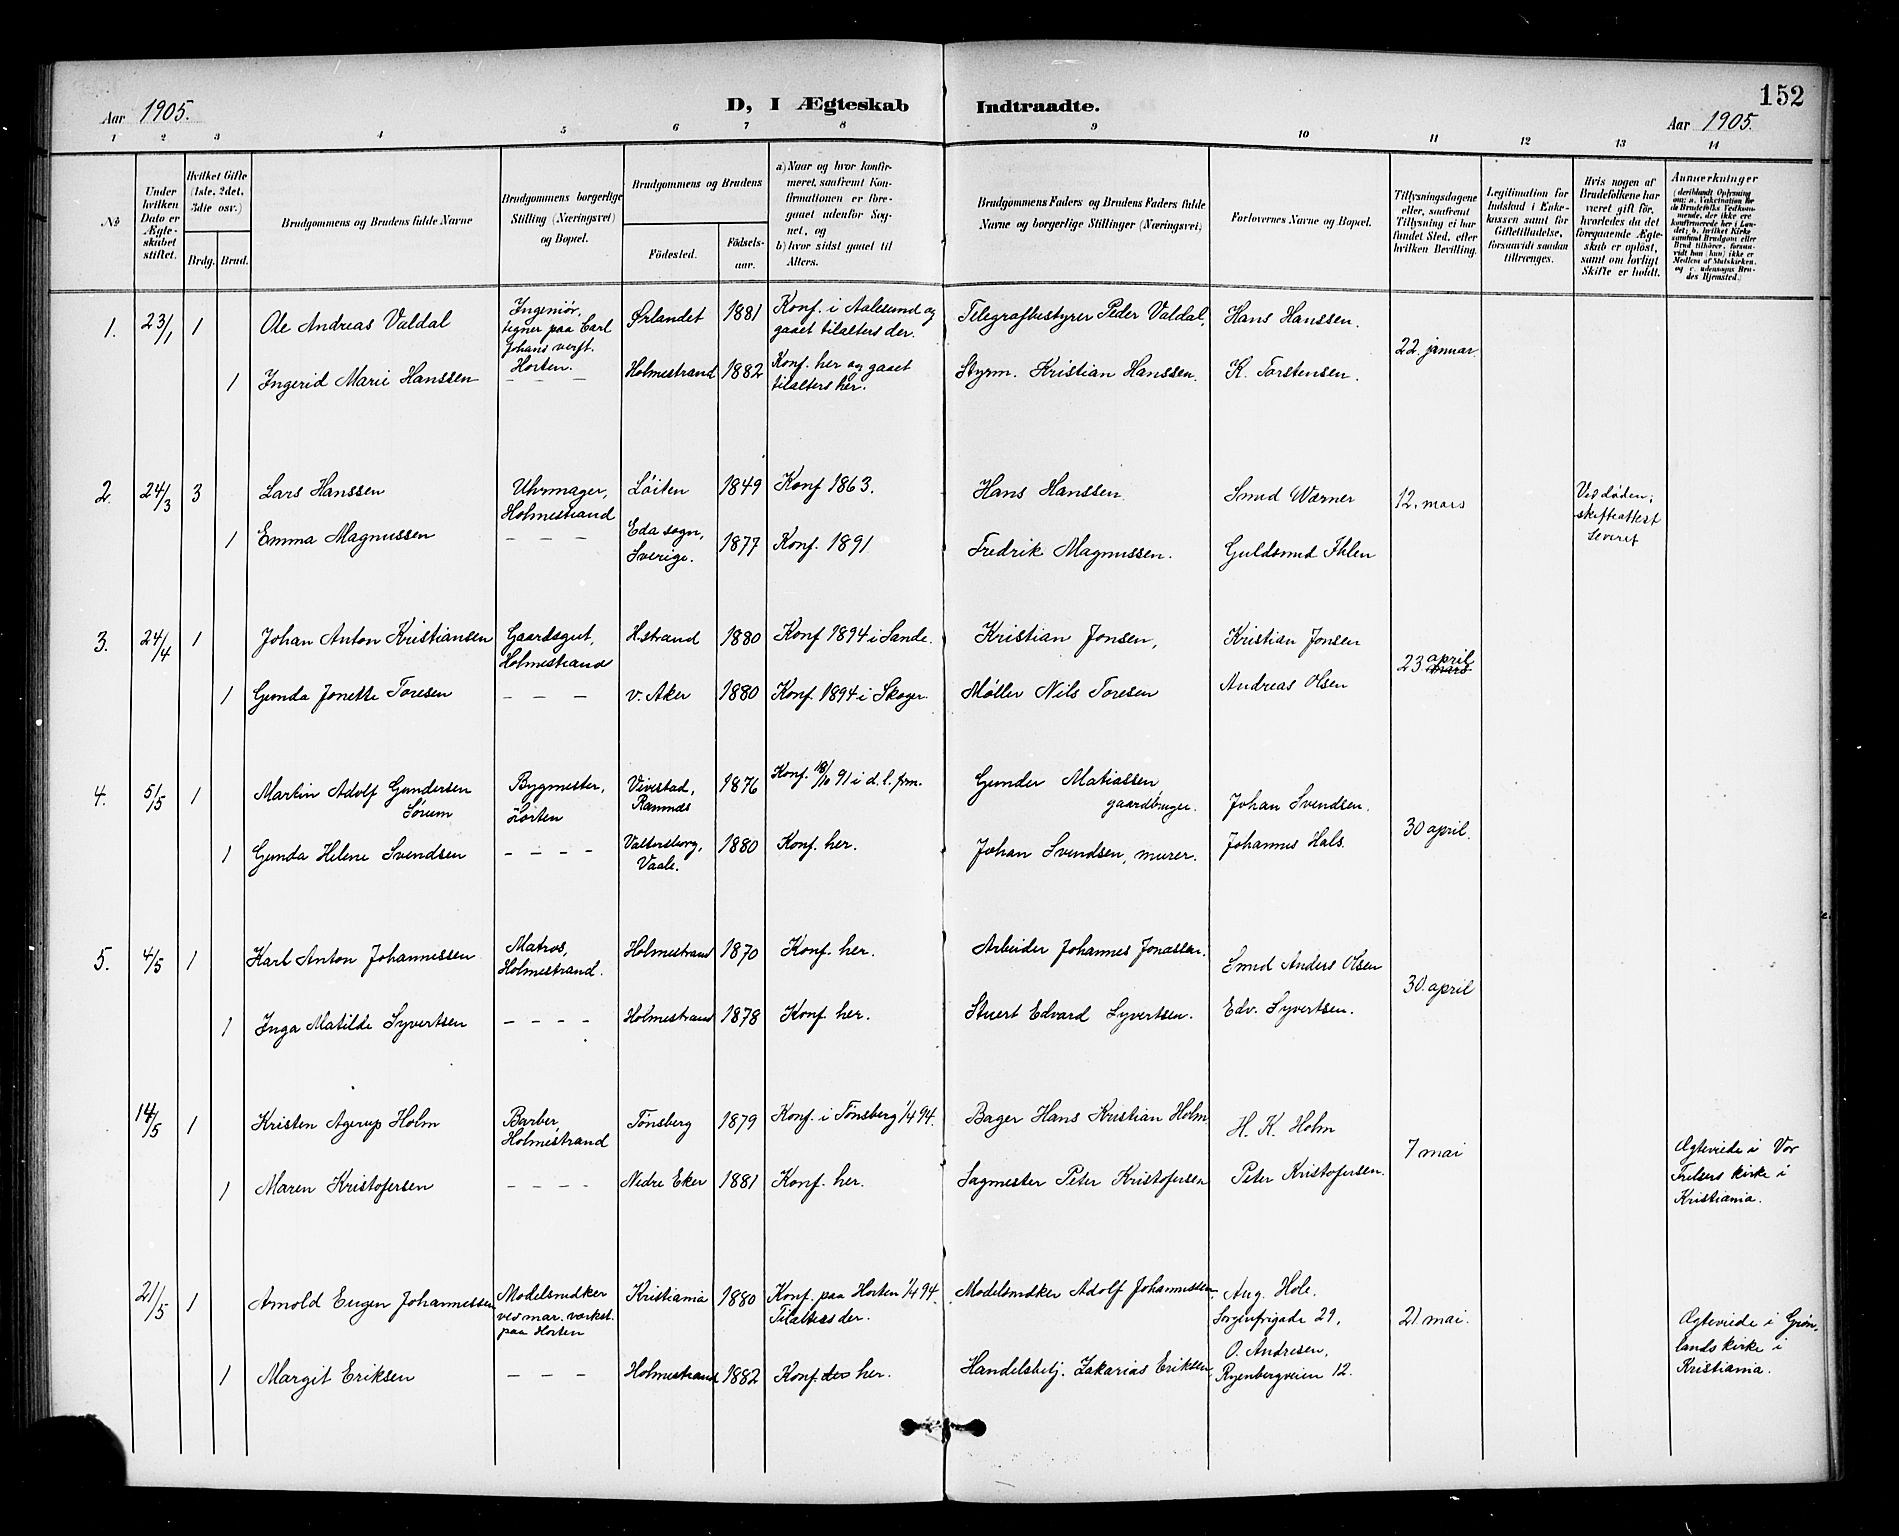 152
Aar 1905. D, I Ægteskab Indtraadte. Aar 1905.
1 2 3 4 5 6 7 8 9 10 11 12 13 14
№
Under hvilken Dato er Ægteskabet stiftet.
Hvilket Gifte (1ste, 2det, 3die osv.)
Brdg. Brud.
Brudgommens og Brudens fulde Navne
Brudgommens borgerlige Stilling (Næringsvei) og Bopæl.
Brudgommens og Brudens
Fødested.
Födsels-aar.
a) Naar og hvor konfirmeret, saafremt Konfirmationen er foregaaet udenfor Sognet, og
b) hvor sidst gaaet til Alters.
Brudgommens Faders og Brudens Faders fulde Navne og borgerlige Stillinger (Næringsvei)
Forlovernes Navne og Bopæl.
Tillysningsdagene eller, saafremt Tillysning ei har fundet Sted, efter hvilken Bevilling.
Legitimation for Indskud i Enkekassen samt for Giftetilladelse, forsaavidt saadan tiltrænges.
Hvis nogen af Brudefolkene har været gift før, hvorledes da det foregaaende Ægteskab er opløst, samt om lovligt Skifte er holdt.
Anmærkninger
(deriblandt Oplysning om: a. Vakcination for de Brudefolks Vedkommende, der ikke ere konfirmerede her i Landet; b. hvilket Kirkesamfund Brudgom eller Brud tilhører, forsaavidt han (hun) ikke er Medlem af Statskirken, og c. udensogns Brudes Hjemsted.)
1. 23/1 1 Ole Andreas Valdal
Ingeniør,
tegner paa Carl
Johans verft.
Horten.
Ørlandet 1881 Konf. i Aalesund og
gaaet tilalters der.
Telegrafbestyrer Peder Valdal, Hans Hanssen.
22. januar
1 Ingerid Marie Hanssen – – – Holmestrand 1882 Konf. her og gaaet
tilalters her.
Styrm. Kristian Hanssen. K. Torstensen.
2. 24/3 3 Lars Hanssen
Uhrmager,
Holmestrand
Löiten 1849 Konf 1863. Hans Hanssen. Smed Wærner 12. mars
Ved døden;
skifteattest
leveret
1 Emma Magnussen – – – Eda sogn,
Sverige.
1877 Konf. 1891 Fredrik Magnussen. Guldsmed Ihlen
3. 24/4 1 Johan Anton Kristiansen
Gaardsgut,
Holmestrand
H.strand 1880 Konf 1894 i Sande. Kristian Jonsen, Kristian Jonsen
23 mars april
1 Gunda Jonette Toresen – – – v. Aker 1880 Konf. 1894 i Skoger. Møller Nils Toresen Andreas Olsen
4. 5/5 1 Martin Adolf Gundersen
Sörum
Bygmester,
Horten
Vivestad,
Ramnæs
1876 Konf. 18/10 91 i d. l. frm. Gunder Matiassen
gaardbruger.
Johan Svendsen.
30 april.
1 Gunda Helene Svendsen – – – – Valtersborg,
Vaale.
1880 Konf. her. Johan Svendsen, murer. Johannes Hals.
5. 4/5 1 Karl Anton Johannessen
Matros,
Holmestrand.
Holmestrand 1870 Konf. her. Arbeider Johannes Jonassen. Smed Anders Olsen
30. april
1 Inga Matilde Syvertsen – – – – Holmestrand 1878 Konf. her. Stuert Edvard Syvertsen. Edv. Syvertsen.
14/5 1 Kristen Agerup Holm
Barber,
Holmestrand
Tønsberg 1879 Konf. i Tønsberg 1/4 94. Bager Hans Kristian Holm. H. K. Holm
7 mai
Ægteviede i Vor
Frelsers kirke i
Kristiania.
1 Maren Kristofersen – – – – Nedre Eker 1881 Konf. her. Sagmester Peter Kristofersen Peter Kristofersen.
21/5 1 Arnold Eugen Johannessen
Modelsnidker
ved mar. værkst.
paa Horten
Kristiania 1880 Konf. paa Horten 1/4 94.
Tilalters der.
Modelsnidker Adolf Johannessen, Aug. Hole.
Sorgenfrigade 29,
21 mai.
Ægteviede i Grøn-
lands kirke i
Kristiania.
1 Margit Eriksen – – – Holmestrand 1882 Konf. der her. Handelsbetj. Zakarias Eriksen. O. Andresen,
Ryenbergveien 12.